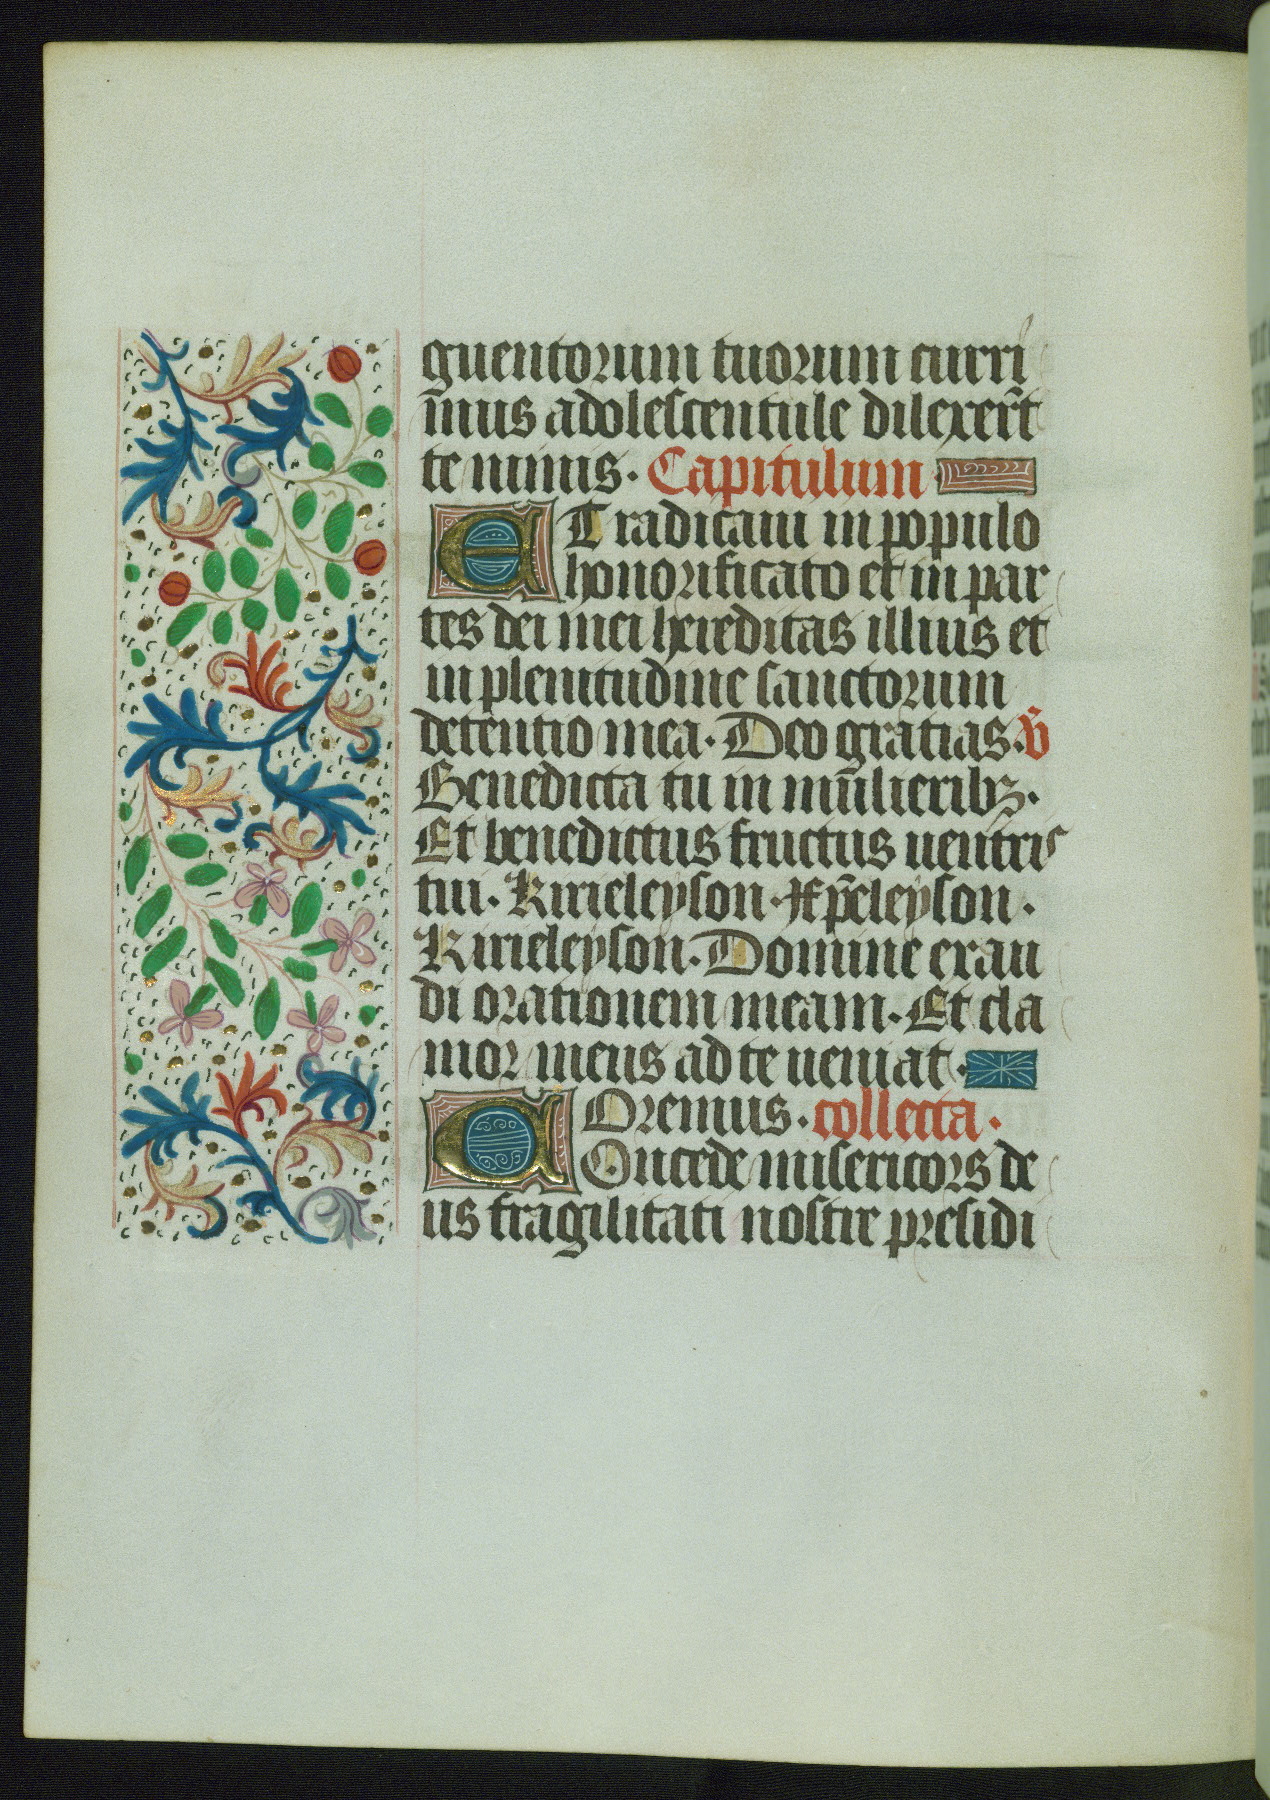 guentorum tuorum curri
m̄us adolescentule dilexer̄t
te nimis. Capitulum
ET radicaui in populo
honorificato et in par
tes dei mei hereditas illius et
in plenitudine sanctorum
detentio mea. Deo gratias. v̄
Benedicta tu in mūlieribꝫ.
Et benedictus fructus uentris
tui. Kirieleyson. Xp̄eleyson.
Kirieleyson. Domine exau
di orationem meam. Et cla
mor meus ad te ueniat.
Oremus. collecta.
COncede misericors de
us fragilitati nostre presidi